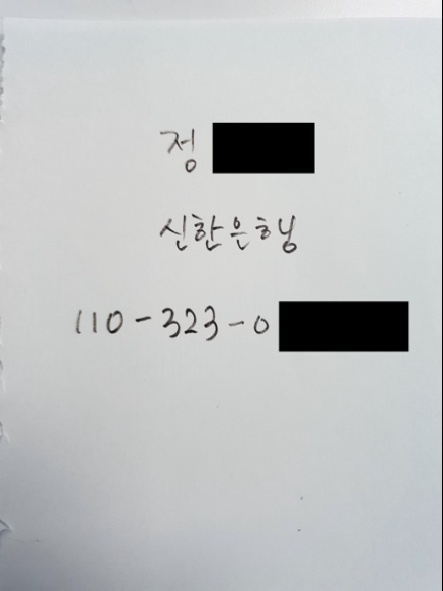 정
신한은행
110-323-0